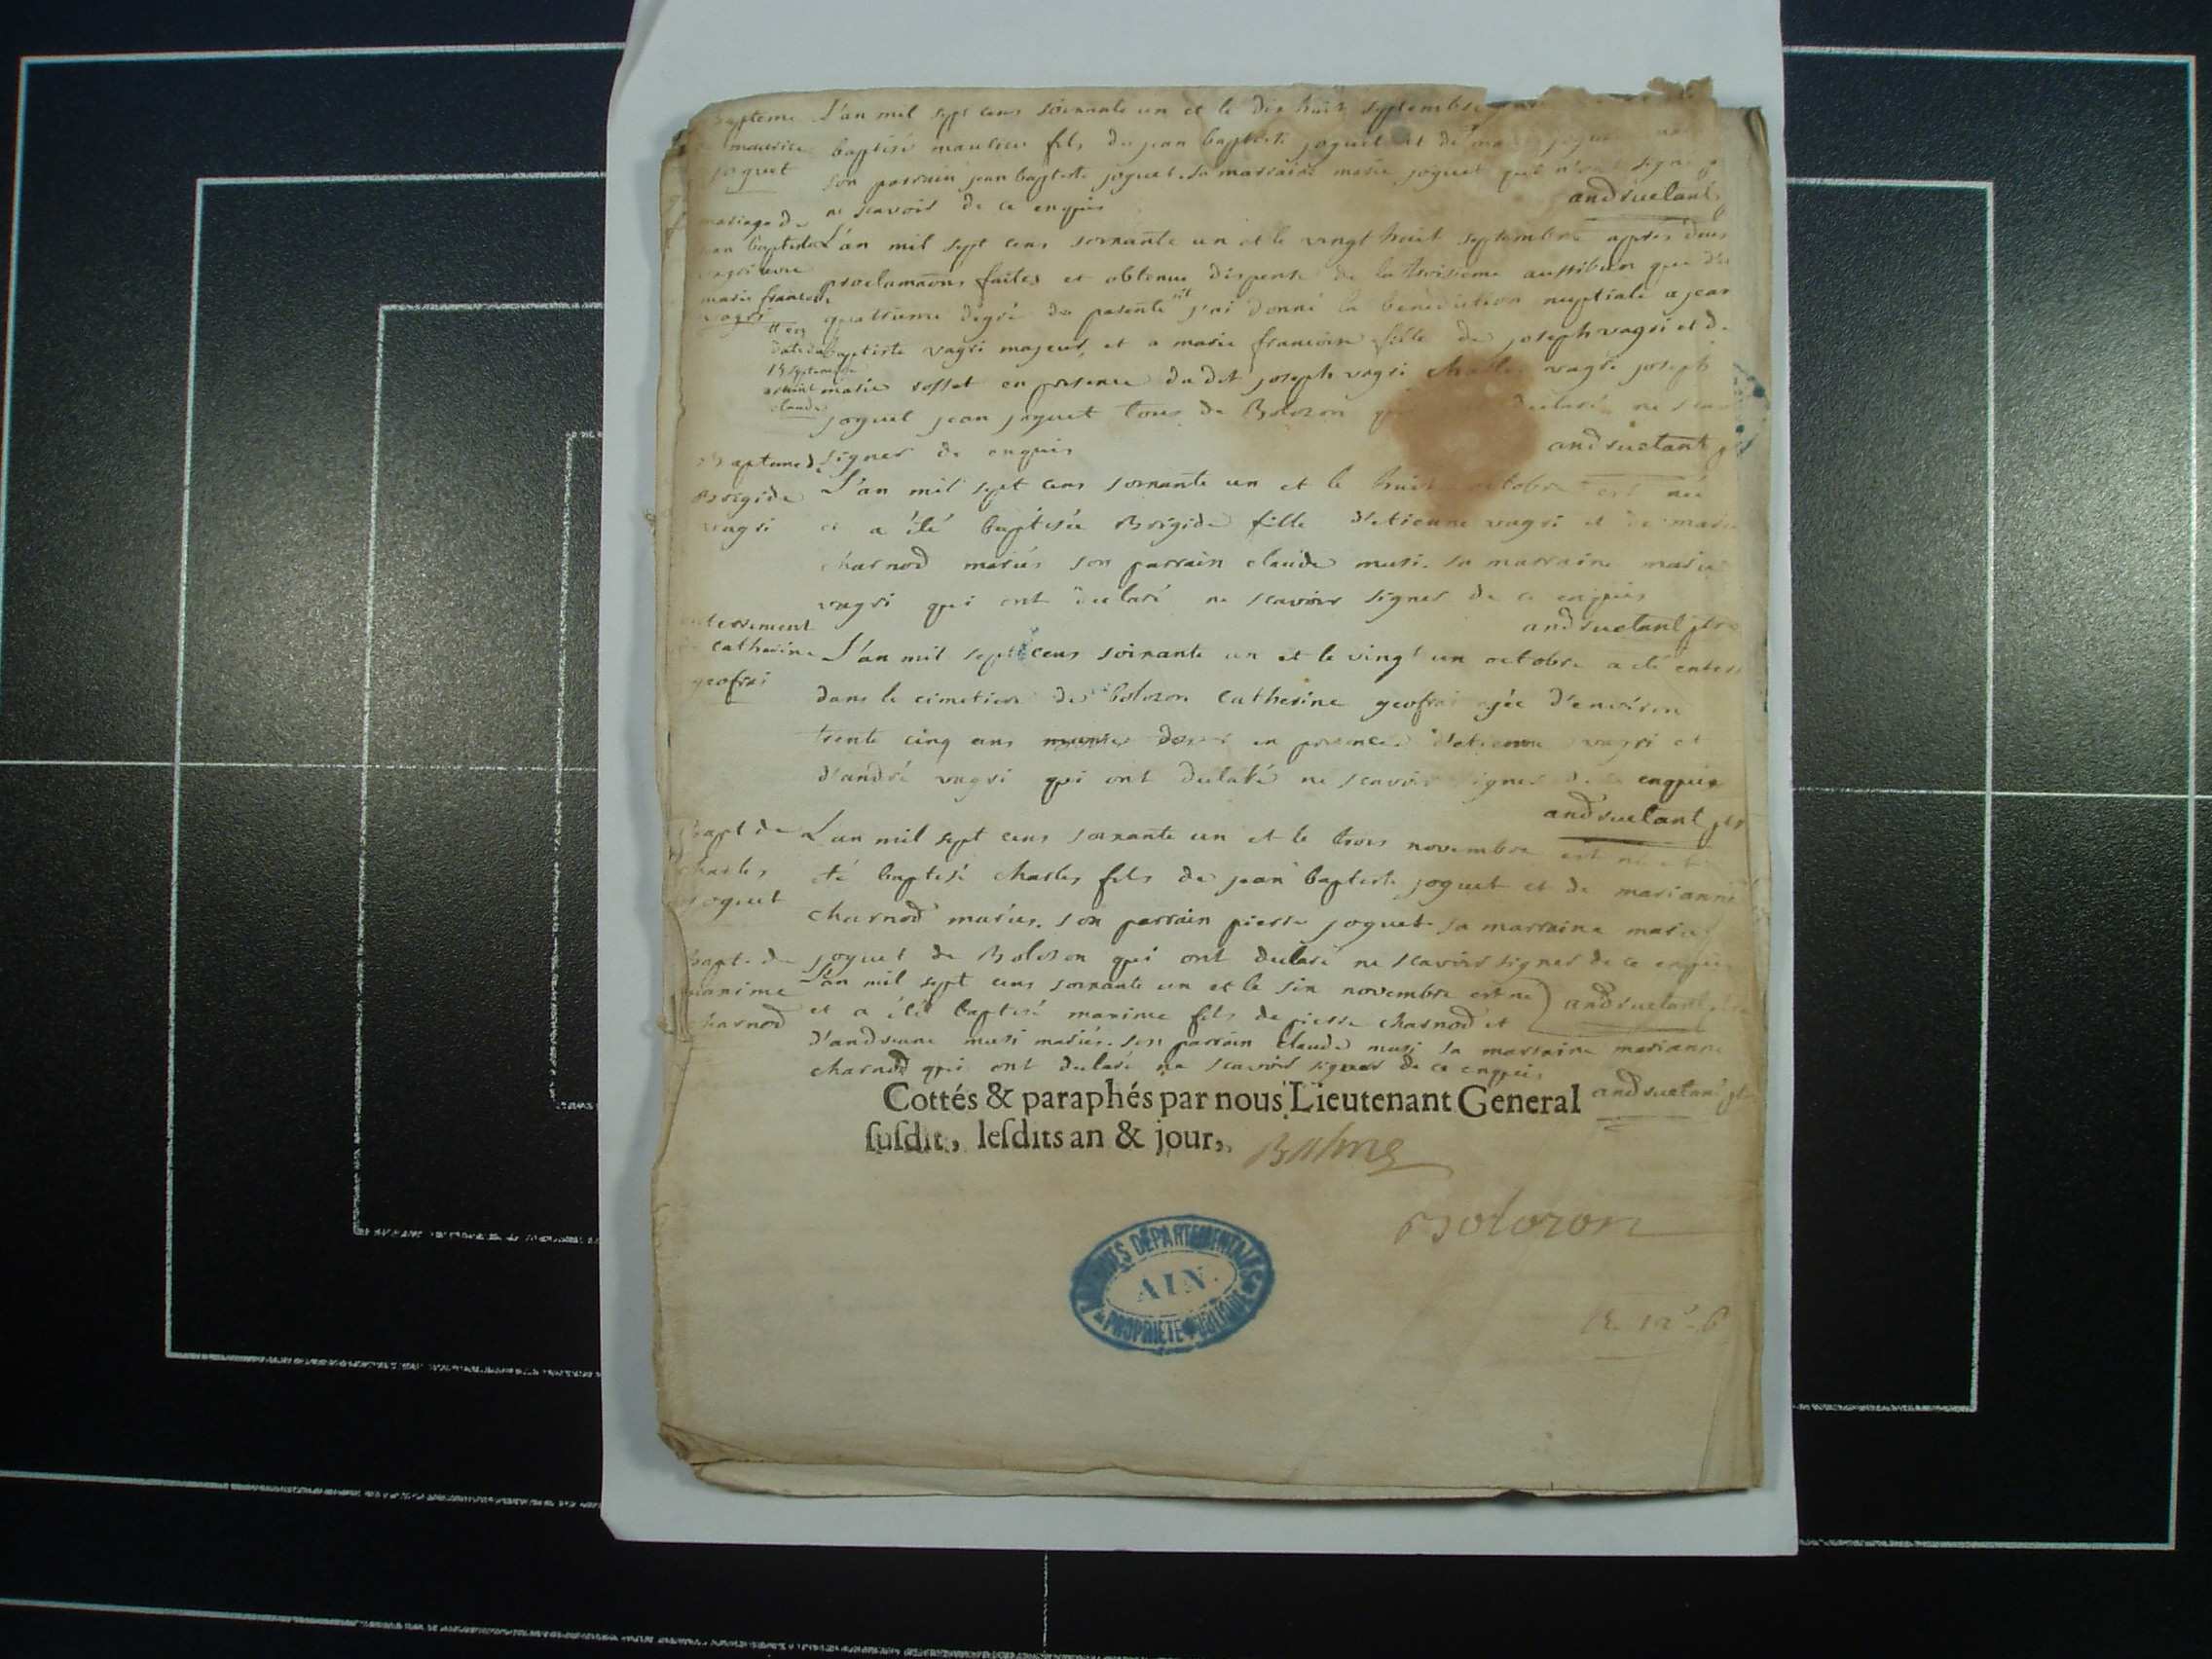 Bapteme L'an mil sept cens soixante un et le dix huit septembre
maurice baptisé maurice fils de jean baptiste joguet et de
joguet son parrain jean baptiste joguet. sa marraine marie joguet qui n'ont signé
ne scavoir de ce enquis andruetant
mariage de
jean baptiste L'an mil sept cens soixante un et le vingt huit septembre après deux
vagri avec proclamaons faites et obtenue dispense de la troisieme aussibien que du
marie francoise quattrieme degré de parenté j'ai donné la benediction nuptiale a jean
vagri
en date du baptiste vagri majeur, et a marie francoise fille de joseph vagri et de
15 septembre
claude marie rosset en presence dudit joseph vagri charles vagri joseph
joguet jean joguet tous de Bolozon declaré ne
Bapteme de signer de enquis andruetant
Brigide L'an mil sept cens soixante un et le huit octobre est née
vagri et a été baptisée Brigide fille d'etienne vagri et de marie
charnod mariés son parrain claude musi. sa marraine marie
vagri qui ont declaré ne scavoir signer de ce enquis
enterrement andruetant ptre
catherine L'an mil sept cens soixante un et le vingt un octobre a été enterré
geofrai dans le cimetiere de bolozon Catherine geofrai agée d'environ
trente cinq ans en presence d'etienne vagri et
d'andré vagri qui ont declaré ne scavoir signer de enquis
andruetant ptr
bapt de L'an mil sept cens soixante un et le trois novembre est né
charles été baptisé charles fils de jean baptiste joguet et de marianne
joguet charnod mariés. son parrain pierre joguet. sa marraine marie
bapt. de joguet de Bolozon qui ont declaré ne scavoir signer de ce enquis
maxime L'an mil sept cens soixante un et le six novembre est né andruetant
charnod et a été baptisé maxime fils de pierre charnod et
d'andreanne musi mariés. son parrain claude musi sa marraine marianne
charnod qui ont declaré ne scavoir signer de ce enquis
Cottés & paraphés par nous Lieutenant General andruetant
susdit, lesdits an & jour, Balme
Bolozon
ARCHIVES DÉPARTEMENTALES
AIN.
PROPRIÉTÉ PUBLIQUE